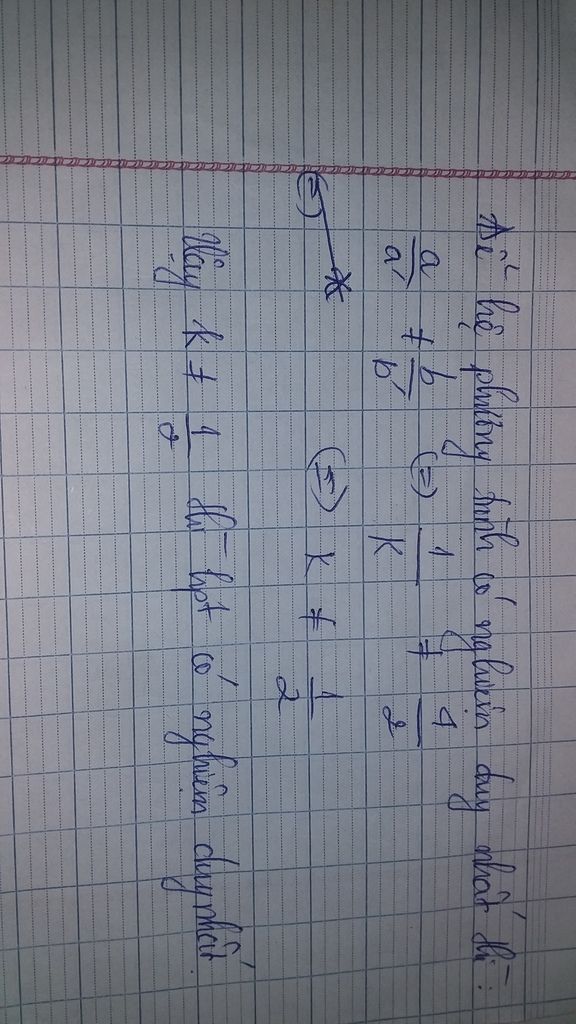 Để hệ phương trình có nghiệm duy nhất thì:
a/a' ≠ b/b' (=) 1/k ≠ 4/2
(=) (=) k ≠ 1/2
Vậy k ≠ 1/2 thì hpt có nghiệm duy nhất